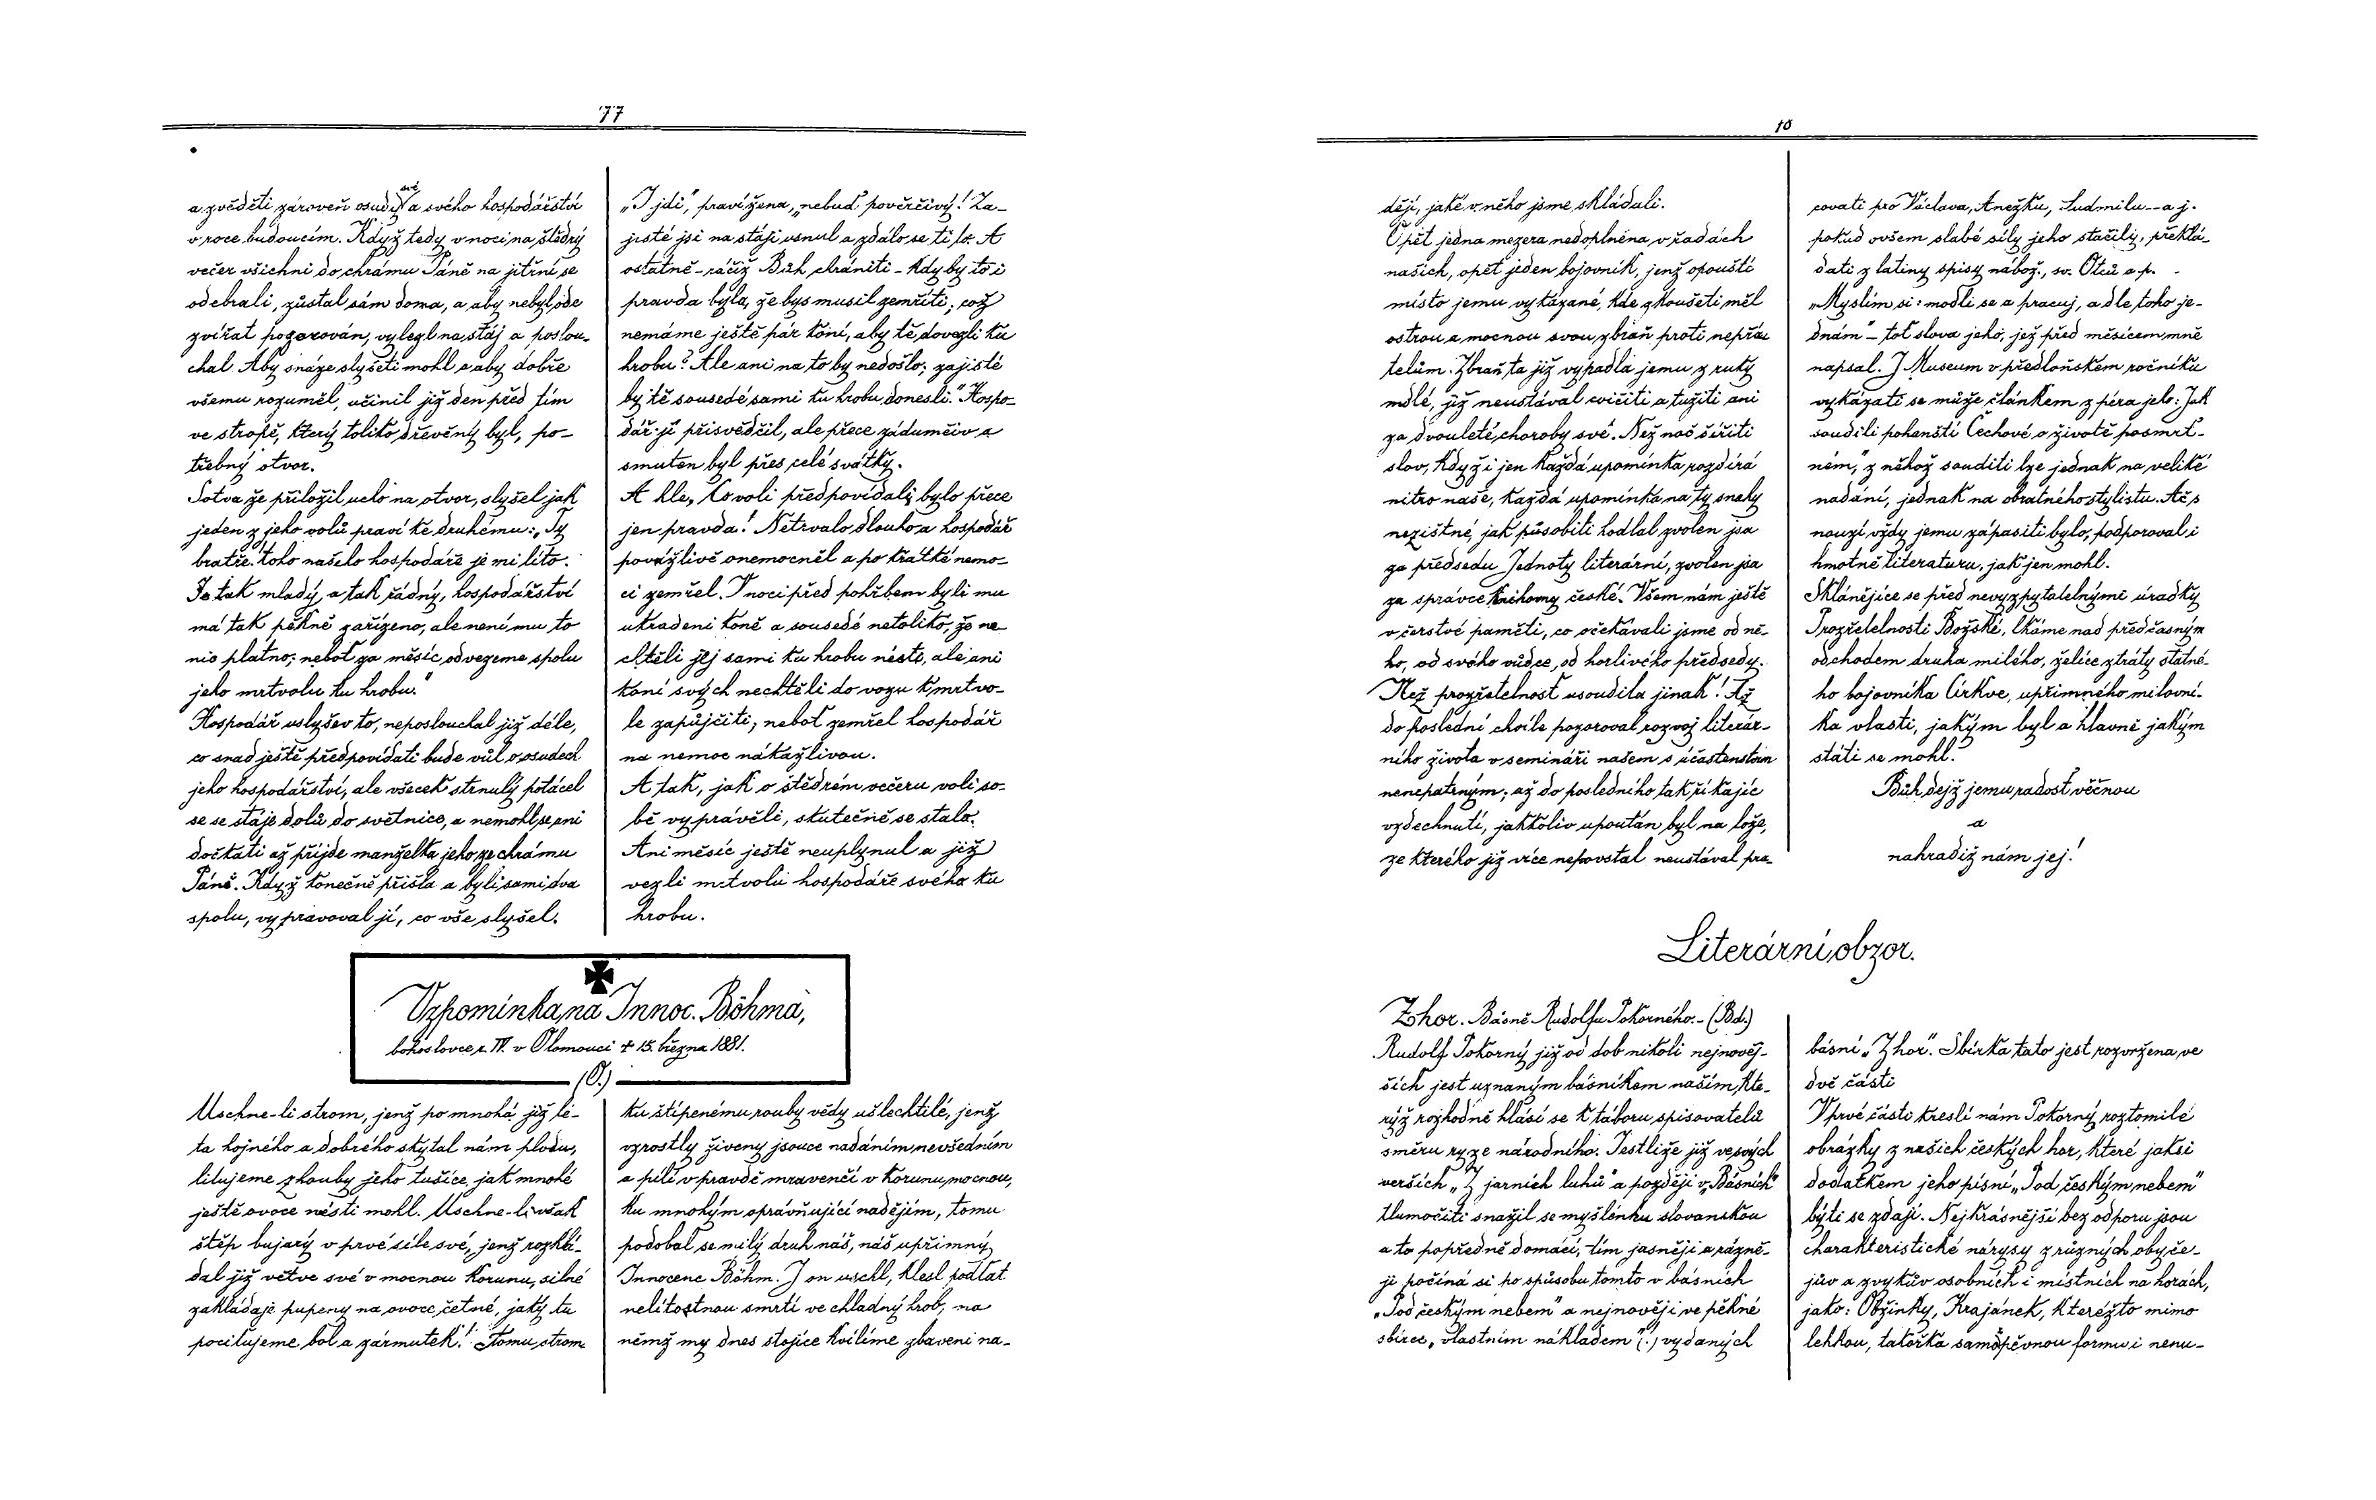 77
a zvěděti zároveň osudy své a svého hospodářství
v roce budoucím. Když tedy v noci na štědrý
večer všichni do chrámu Páně na jitřní se
odebrali, zůstal sám doma, a aby nebyl ode
zvířat pozorován, vylezl na stáj a poslou-
chal. Aby snáze slyšeti mohl a aby dobře
všemu rozuměl, učinil již den před tím
ve stropě, který toliko dřevěný byl, po-
třebný otvor.
Sotva že přiložil ucho na otvor, slyšel jak
jeden z jeho volů praví ke druhému: „Ty
bratře! toho našeho hospodáře je mi líto.
Je tak mladý, a tak řádný, hospodářství
má tak pěkně zařízeno, ale není mu to
nic platno; neboť za měsíc odvezeme spolu
jeho mrtvolu ku hrobu."
Hospodář uslyšev to, neposlouchal již déle,
co snad ještě předpovídati bude vůl o osudech
jeho hospodářství, ale všecek strnulý potácel
se se stáje dolů do světnice, a nemohl se ani
dočkati až přijde manželka jeho ze chrámu
Páně. Když konečně přišla a byli sami dva
spolu, vypravoval jí, co vše slyšel.
„I jdi", praví žena, „nebuď pověrčivý! Za-
jisté jsi na stáji usnul a zdálo se ti to. A
ostatně – ráčiž Bůh chrániti – kdyby to i
pravda byla, že bys musil zemříti, což
nemáme ještě pár koní, aby tě dovezli ku
hrobu? Ale ani na to by nedošlo; zajisté
by tě sousedé sami ku hrobu donesli." Hospo-
dář jí přisvědčil, ale přece zádumčiv a
smuten byl přes celé svátky.
A hle, co voli předpovídali, bylo přece
jen pravda! Netrvalo dlouho a hospodář
povážlivě onemocněl a po krátké nemo-
ci zemřel. V noci před pohřbem byli mu
ukradeni koně a sousedé netoliko, že ne
chtěli jej sami ku hrobu nésti, ale ani
koní svých nechtěli do vozu k mrtvo-
le zapůjčiti; neboť zemřel hospodář
na nemoc nakažlivou.
A tak, jak o štědrém večeru voli so-
bě vyprávěli, skutečně se stalo.
Ani měsíc ještě neuplynul a již
vezli mrtvolu hospodáře svého ku
hrobu.
Vzpomínka na Innoc. Böhma,
bohoslovce r. IV. v Olomouci + 15. března 1881.
(O.)
Uschne-li strom, jenž po mnohá již lé-
ta hojného a dobrého skýtal nám plodu,
litujeme zhouby jeho tušíce, jak mnohé
ještě ovoce nésti mohl. Uschne-li však
štěp bujarý v prvé síle své, jenž rozklá-
dal již větve své v mocnou korunu, silné
zakládaje pupeny na ovoce četné, jaký tu
pociťujeme bol a zármutek! Stomu strom
ku štípenému rouby vědy ušlechtilé, jenž
vzrostly živeny jsouce nadáním nevšedním
a pílí v pravdě mravenčí v korunu mocnou,
ku mnohým oprávňující nadějím, tomu
podobal se milý druh náš, náš upřímný
Innocenc Böhm. I on uschl, klesl podťat
nelítostnou smrtí ve chladný hrob, na
němž my dnes stojíce kvílíme zbaveni na-
10
dějí, jaké v něho jsme skládali.
Opět jedna mezera nedoplněna v řadách
našich, opět jeden bojovník, jenž opouští
místo jemu vykázané, kde zkoušeti měl
ostrou a mocnou svou zbraň proti nepřá-
telům. Zbraň ta již vypadla jemu z ruky
mdlé, již neustával cvičiti a tužiti ani
za dvouleté choroby své. Než nač šířiti
slov, když i jen každá upomínka rozdírá
nitro naše, každá upomínka na ty snahy
nezištné, jak působiti hodlal zvolen jsa
za předsedu Jednoty literární, zvolen jsa
za správce knihovny české. Všem nám ještě
v čerstvé paměti, co očekávali jsme od ně-
ho, od svého vůdce, od horlivého předsedy.
Než prozřetelnost usoudila jinak! Až
do poslední chvíle pozoroval rozvoj literár-
ního života v semináři našem s účastenstvím
nenepatrným; až do posledního tak říkajíc
vzdechnutí, jakkoliv upoután byl na lože,
ze kterého již více nepovstal neustával pra-
covati pro Václava, Anežku, Ludmilu -- a j.
pokud ovšem slabé síly jeho stačily, překlá-
dati z latiny spisy nábož., sv. Otců a p. -
„Myslím si: modli se a pracuj, a dle toho je-
dnám" – toť slova jeho, jež před měsícem mně
napsal. I Museum v předloňském ročníku
vykázati se může článkem z péra jeho: Jak
soudili pohanští Čechové o životě posmrt-
ném," z něhož souditi lze jednak na veliké
nadání, jednak na obratného stylistu. Ač s
nouzí vždy jemu zápasiti bylo, podporoval i
hmotně literaturu, jak jen mohl.
Sklánějíce se před nevyzpytatelnými úradky
Prozřetelnosti Božské, lkáme nad předčasným
odchodem druha milého, želíce ztráty statné-
ho bojovníka Církve, upřímného milovní-
ka vlasti, jakým byl a hlavně jakým
státi se mohl.
Bůh dejž jemu radost věčnou
a
nahradiž nám jej!
Literární obzor.
Z hor. Básně Rudolfa Pokorného. – (Bd.)
Rudolf Pokorný již od dob nikoli nejnověj-
ších jest uznaným básníkem naším, kte-
rýž rozhodně hlásí se k táboru spisovatelů
směru ryze národního. Jestliže již ve svých
verších „Z jarních luhů" a později v „Básních"
tlumočiti snažil se myšlénku slovanskou
a to popředně domácí, tím jasněji a rázně-
ji počíná si po spůsobu tomto v básních
„Pod českým nebem" a nejnověji ve pěkné
sbírce „vlastním nákladem" (.) vydaných
básní „Z hor". Sbírka tato jest rozvržena ve
dvě části
V prvé části kreslí nám Pokorný roztomilé
obrázky z našich českých hor, které jaksi
dodatkem jeho písní „Pod českým nebem"
býti se zdají. Nejkrásnější bez odporu jsou
charakteristické nárysy z různých obyče-
jův a zvykův osobních i místních na horách,
jako: Obžinky, Krajánek, kteréžto mimo
lehkou, takořka samozpěvnou formu i nenu-